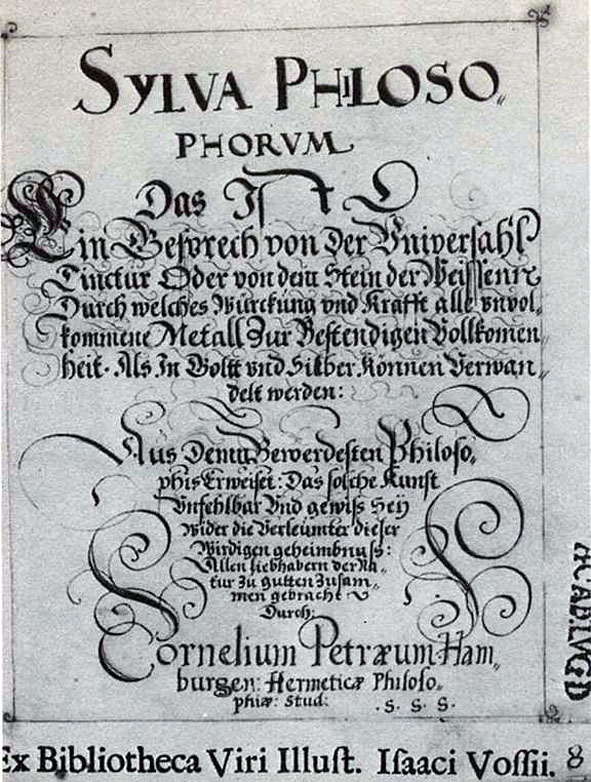 SYLVA PHILOSO„
PHORVM
Das Ist
Ein Gesprech von der Vniversahls
Tinctur Oder von dem Stein der Weissen rc
Durch welches Würckung vnd Krafft alle vnvol„
kommene Metall Zur Bestendigen Vollkomen„
heit. Als In Goltt vnd Silber Können Verwan„
delt werden:
Aus Denen Bewerdesten Philoso„
phis Erweiset: Das solche Kunst
Vnfehlbar Vnd gewiss Sey
Wider die Verleumter dieser
Wirdigen geheimbnuss:
Allen liebhabern der Na„
tur Zu gutten Zusam„
men gebracht
Durch:
Cornelium Petræum Ham„
burgen: Hermeticæ Philoso„
phiæ: Stud: .S. S. S.
Ex Bibliotheca Viri Illuſt. Iſaaci Voſſii. 8
ACAD. LVGD